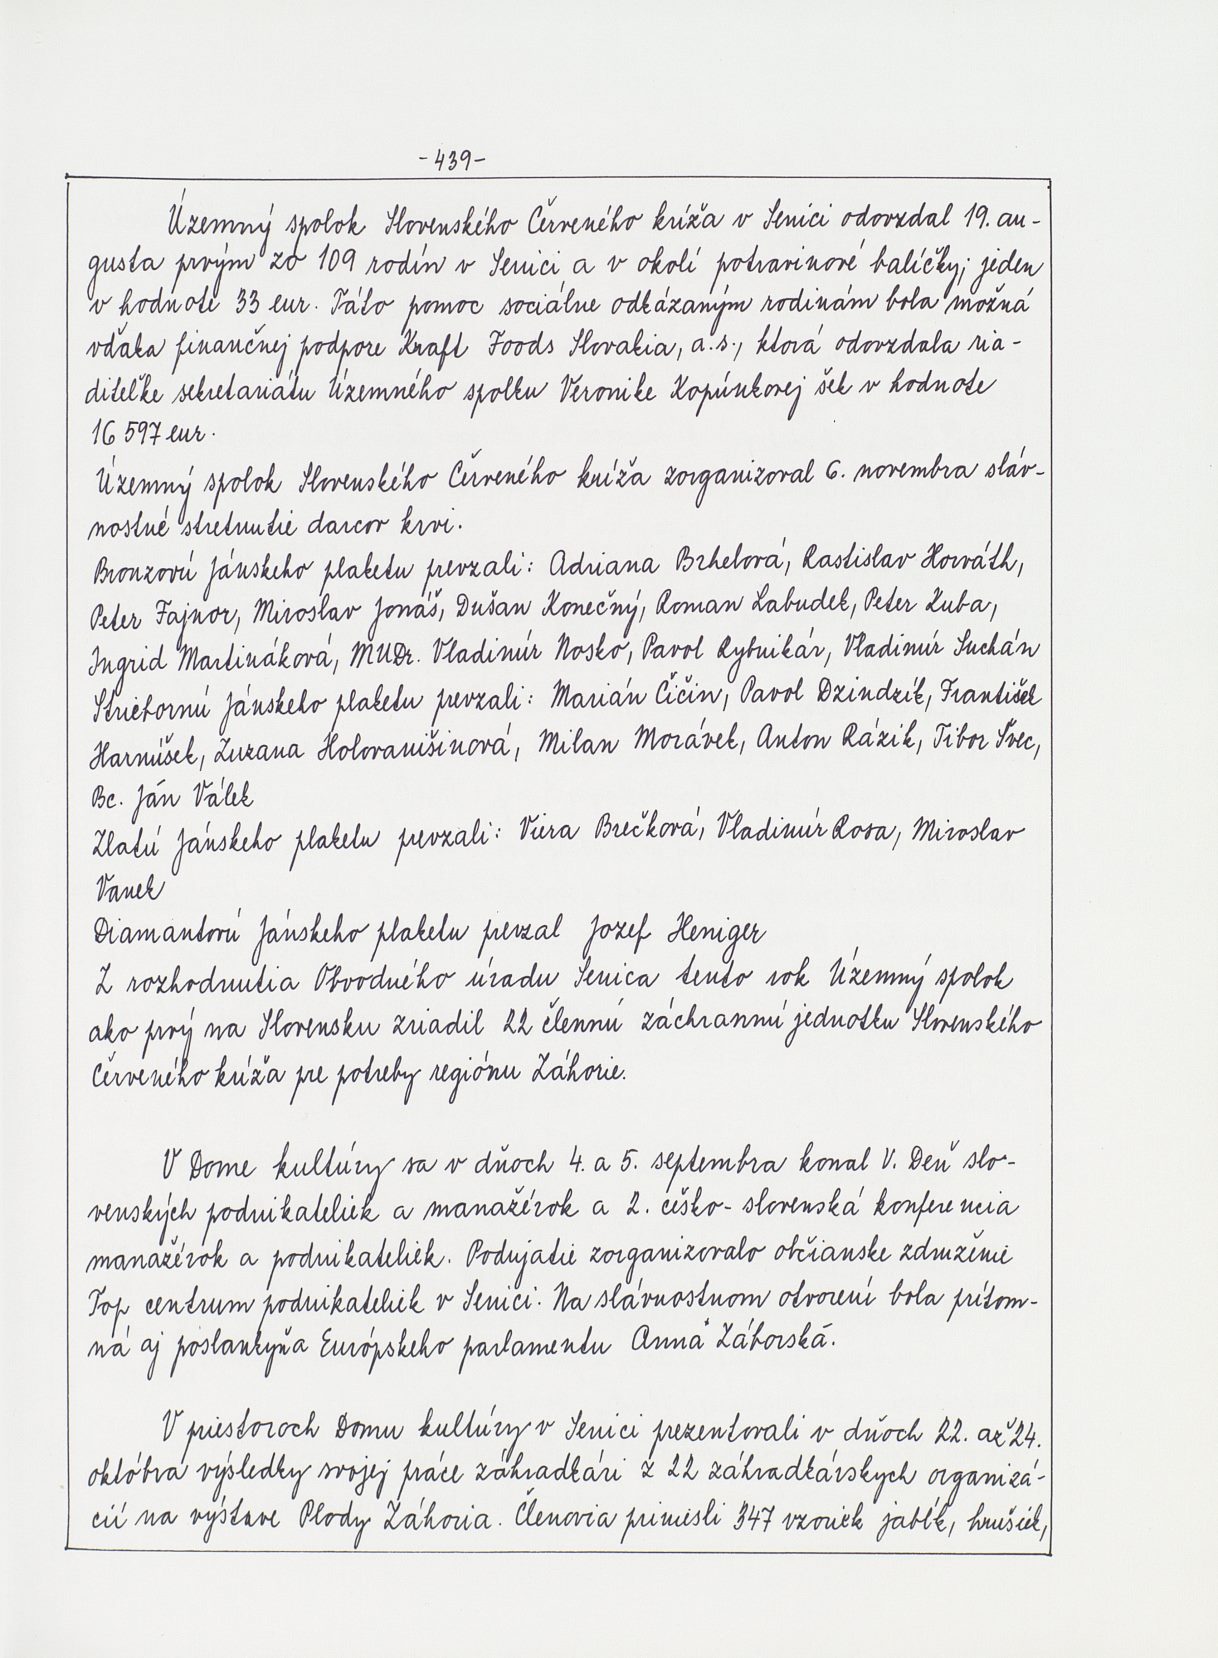 -439-
Územný spolok Slovenského Červeného kríža v Senici odovzdal 19. au-
gusta prvým zo 109 rodín v Senici a v okolí potravinové balíčky; jeden
v hodnote 33 eur. Táto pomoc sociálne odkázaným rodinám bola možná
vďaka finančnej podpore Kraft Foods Slovakia, a.s., ktorá odovzdala ria-
diteľke sekretariátu Územného spolku Veronike Kopúnkovej šek v hodnote
16 597 eur.
Územný spolok Slovenského Červeného kríža zorganizoval 6. novembra sláv-
nostné stretnutie darcov krvi.
Bronzovú Jánskeho plaketu prevzali: Adriana Brhelová, Rastislav Horváth,
Peter Fajnor, Miroslav Jonáš, Dušan Konečný, Roman Labudek, Peter Kuba,
Ingrid Martináková, MUDr. Vladimír Nosko, Pavol Rybnikár, Vladimír Suchán
Striebornú Jánskeho plaketu prevzali: Marián Čičin, Pavol Dzindzík, František
Harnúšek, Zuzana Holovanišinová, Milan Morávek, Anton Rázik, Tibor Švec,
Bc. Ján Válek
Zlatú Jánskeho plaketu prevzali: Viera Brečková, Vladimír Rosa, Miroslav
Vanek
Diamantovú Jánskeho plaketu prevzal Jozef Heniger
Z rozhodnutia Obvodného úradu Senica tento rok Územný spolok
ako prvý na Slovensku zriadil 22 člennú záchrannú jednotku Slovenského
Červeného kríža pre potreby regiónu Záhorie.
V Dome kultúry sa v dňoch 4. a 5. septembra konal V. Deň slo-
venských podnikateliek a manažérok a 2. česko-slovenská konferencia
manažérok a podnikateliek. Podujatie zorganizovalo občianske združenie
Top centrum podnikateliek v Senici. Na slávnostnom otvorení bola prítom-
ná aj poslankyňa Európskeho parlamentu Anna Záborská.
V priestoroch Domu kultúry v Senici prezentovali v dňoch 22. až 24.
októbra výsledky svojej práce záhradkári z 22 záhradkárskych organizá-
cií na výstave Plody Záhoria. Členovia priniesli 347 vzoriek jabĺk, hrušiek,